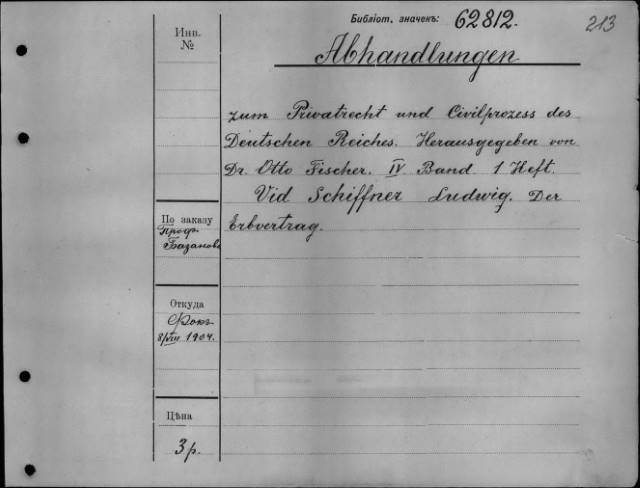 Библіот. значекъ: 62812.
213
Инв.
№
Abhandlungen
zum Privatrecht und Civilprozess des
Deutschen Reiches. Herausgegeben von
Dr. Otto Fischer. IV Band. 1 Heft.
Vid Schiffner Ludwig. Der
Erbvertrag.
По заказу
Проф.
Базанова
Откуда
Фокъ
8/VIII 1904.
Цѣна
3 р.